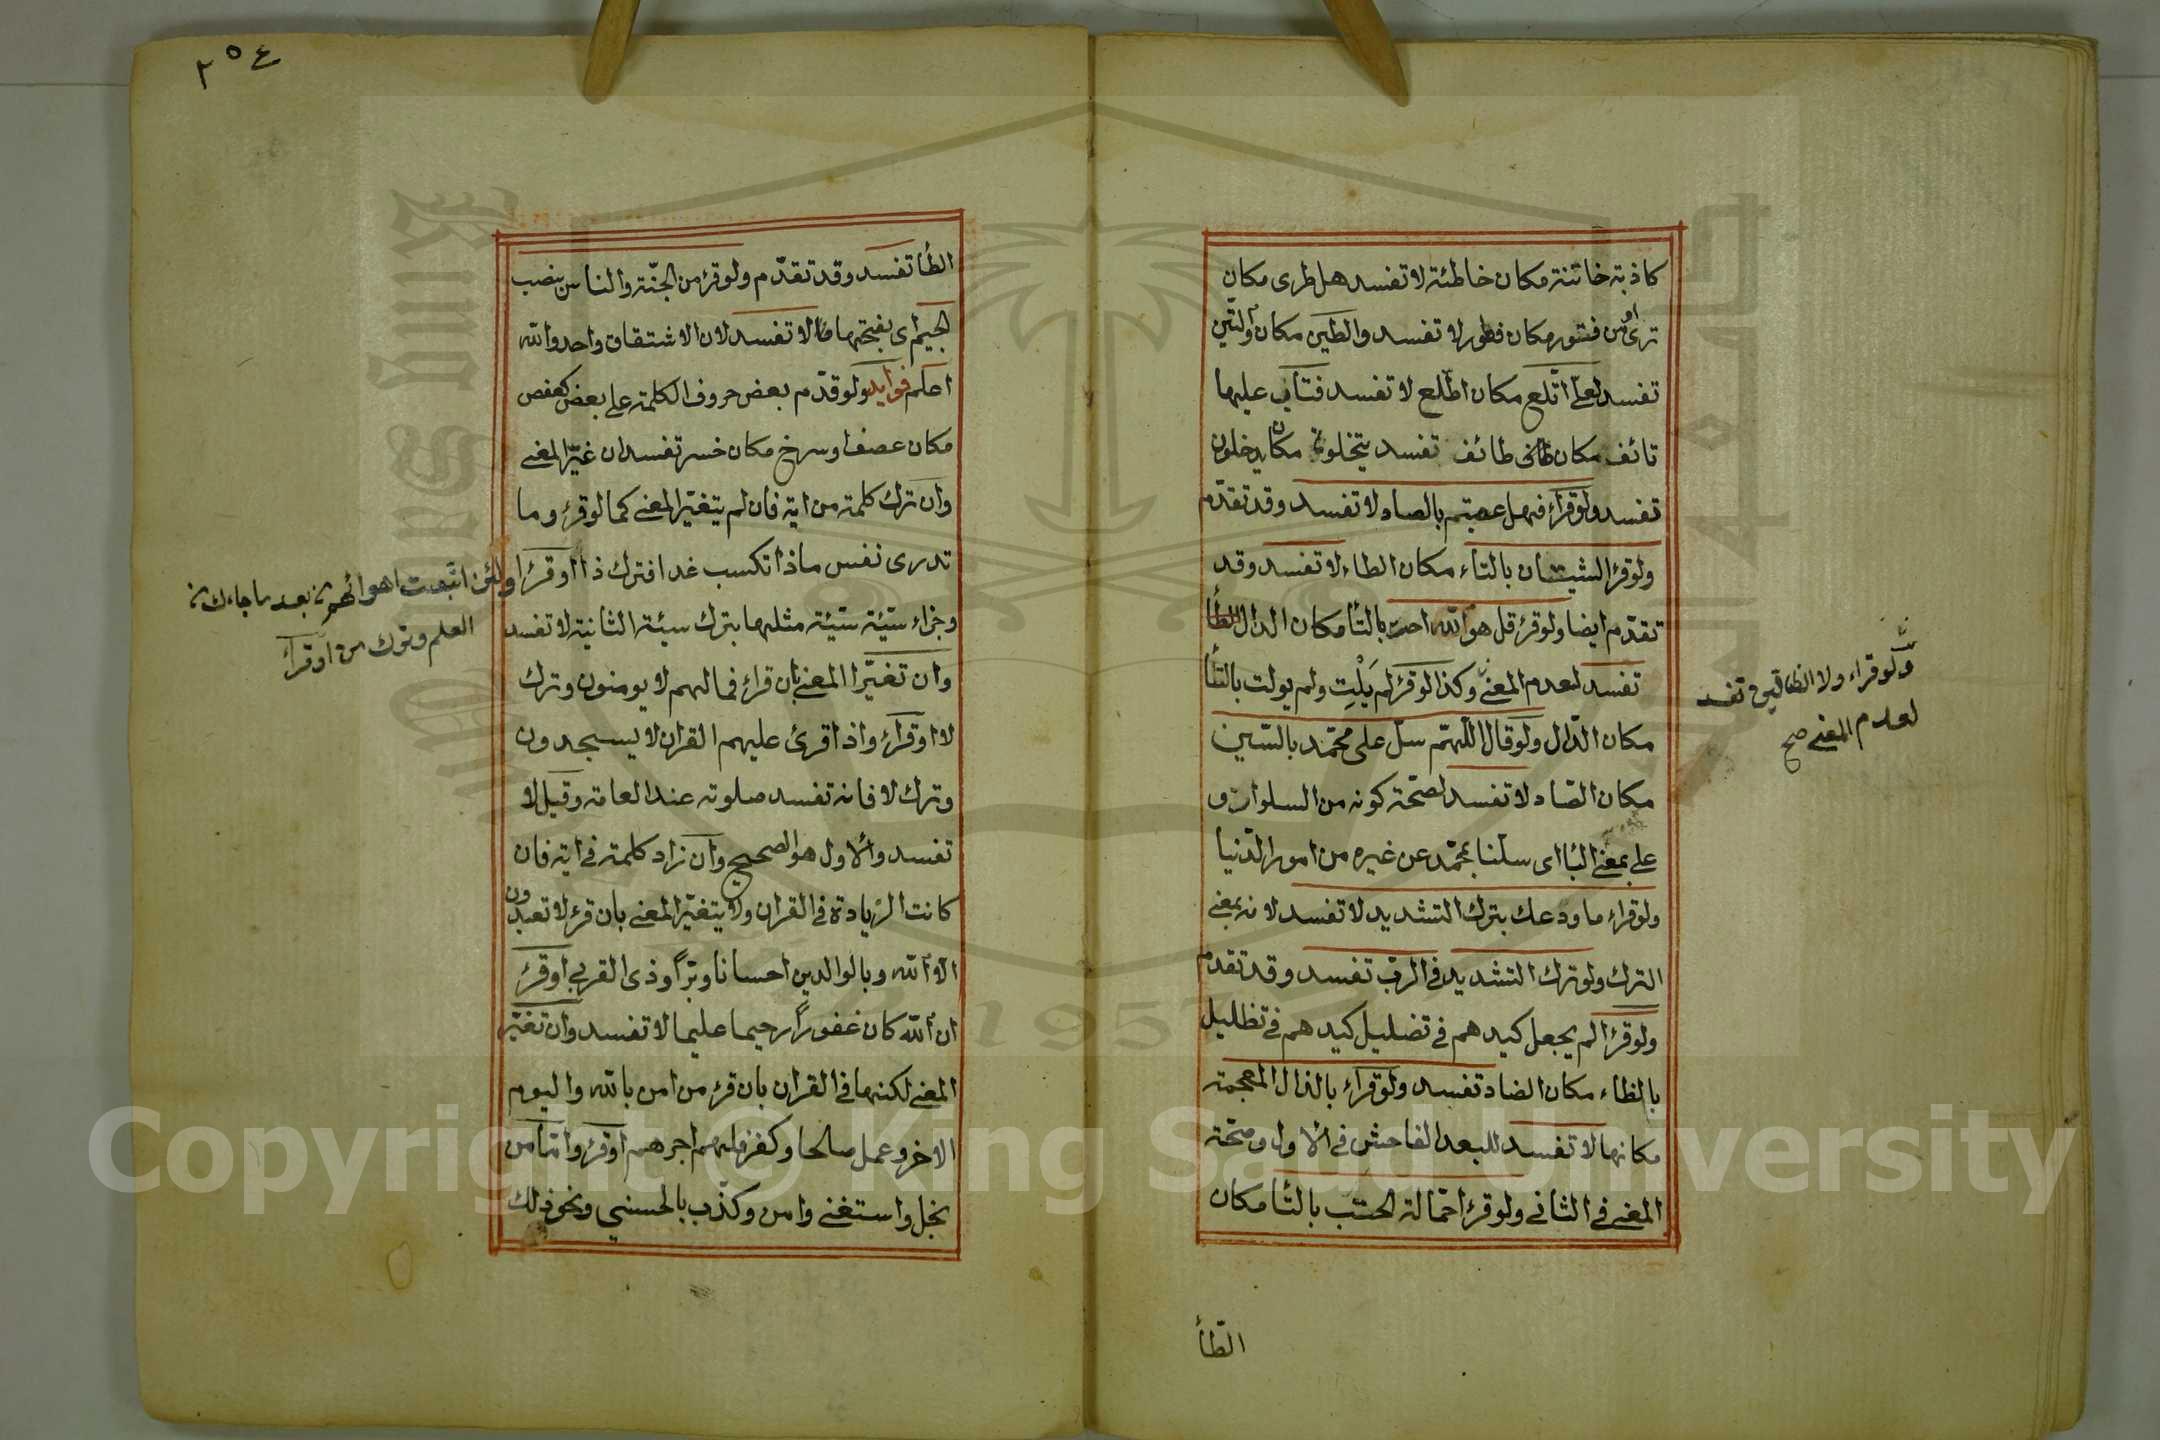 كاذبة خاتئة مكان خاطئة لا تفسد هل طرى مكان
ترى او من فتور مكان فطور لا تفسد والطين مكان والتين
تفسد لعلّى اتّلع مكان اطّلع لا تفسد فتاف عليها
تائف مكان طائف تفسد يتخلون مكان يدخلون
تفسد ولو قراء فهل عصيتم بالصاد لا تفسد وقد تقدّم
ولو قرا الشيتان بالتاء مكان الطاء لا تفسد وقد
تقدّم ايضا ولو قرء قل هو الله احت بالتا مكان الدال
تفسد لعدم المعنى وكذا لو قرا لم يَلِتْ ولم يولت بالتا
مكان الدّال ولو قال اللّهمّ سلّ على محمّد بالسّين
مكان الصّاد لا تفسد لصحّة كونه من السلوان و
على بمعنى البا اى سلّنا بمحمّد عن غيره من امور الدّنيا
ولو قراء ما ودعك بترك التشديد لا تفسد لانه بمعنى
الترك ولو ترك التشديد فى الربّ تفسد وقد تقدم
ولو قرا الم يجعل كيدهم فى تضليل كيدهم فى تظليل
بالظاء مكان الضاد تفسد ولو قراء بالذال المعجمة
مكانها لا تفسد للبعد الفاحش فى الاول وصحّة
المعنى فى الثانى ولو قرا حمّالة الحتب بالتا مكان
الطأ
ولو قراء ولا الظالين تفسد
لعدم المعنى صح
٢٥٤
الطأ تفسد وقد تقدّم ولو قرء من الجنّة والناس بنصب
الجيم اى بفتحها لا تفسد لان الاشتقاق واحد والله
اعلم فوايد ولو قدّم بعض حروف الكلمة على بعض كعفص
مكان عصف او سرخ مكان خسر تفسد ان غيّر المعنى
وان ترك كلمة من اية فان لم يتغيّر المعنى كما لو قرء وما
تدرى نفس ماذا تكسب غدا فترك ذا او قرا
وجزاء سيّئة سيّئة مثلها بترك سيئة الثانية لا تفسد
وان تغيّر المعنى بان قراء فمالهم لا يومنون وترك
لا او قراء واذا قرئ عليهم القران لا يسجدون
وترك لا فانه تفسد صلوته عند العامة وقيل لا
تفسد والاول هو الصحيح وان زاد كلمة فى اية فان
كانت الزيادة فى القران ولا يتغيّر المعنى بان قرء لا تعبدون
الا الله وبالوالدين احسانا وبرّا وذى القربى او قرء
ان الله كان غفورًا رحيما عليما لا تفسد وان تغيّر
المعنى لكنها فى القران بان قرء من امن بالله واليوم
الاخر وعمل صالحا وكفر فلهم اجرهم او قرء وامّا من
بخل واستغنى وامن وكذّب بالحسنى ونحو ذلك
ولئن اتّبعت اهوائهم من بعد ما جاءك من
العلم وترك من او قراء